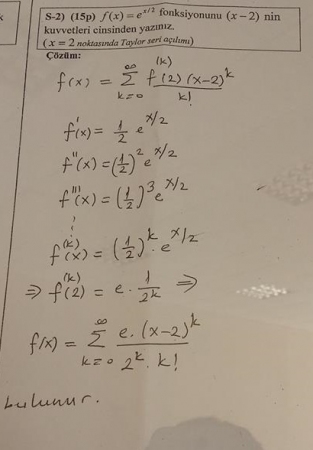 S-2) (15p) f(x) = e^{x/2} fonksiyonunu (x − 2) nin
kuvvetleri cinsinden yazınız.
(x = 2 noktasında Taylor seri açılımı)
Çözüm:
f(x) = ∑_{k=0}^{∞} f^{(k)}(2) (x-2)^k / k!
f'(x) = 1/2 e^{x/2}
f''(x) = (1/2)^2 e^{x/2}
f'''(x) = (1/2)^3 e^{x/2}
f^{(k)}(x) = (1/2)^k . e^{x/2}
⇒ f^{(k)}(2) = e . 1/2^k ⇒
f(x) = ∑_{k=0}^{∞} e . (x-2)^k / 2^k . k!
bulunur.